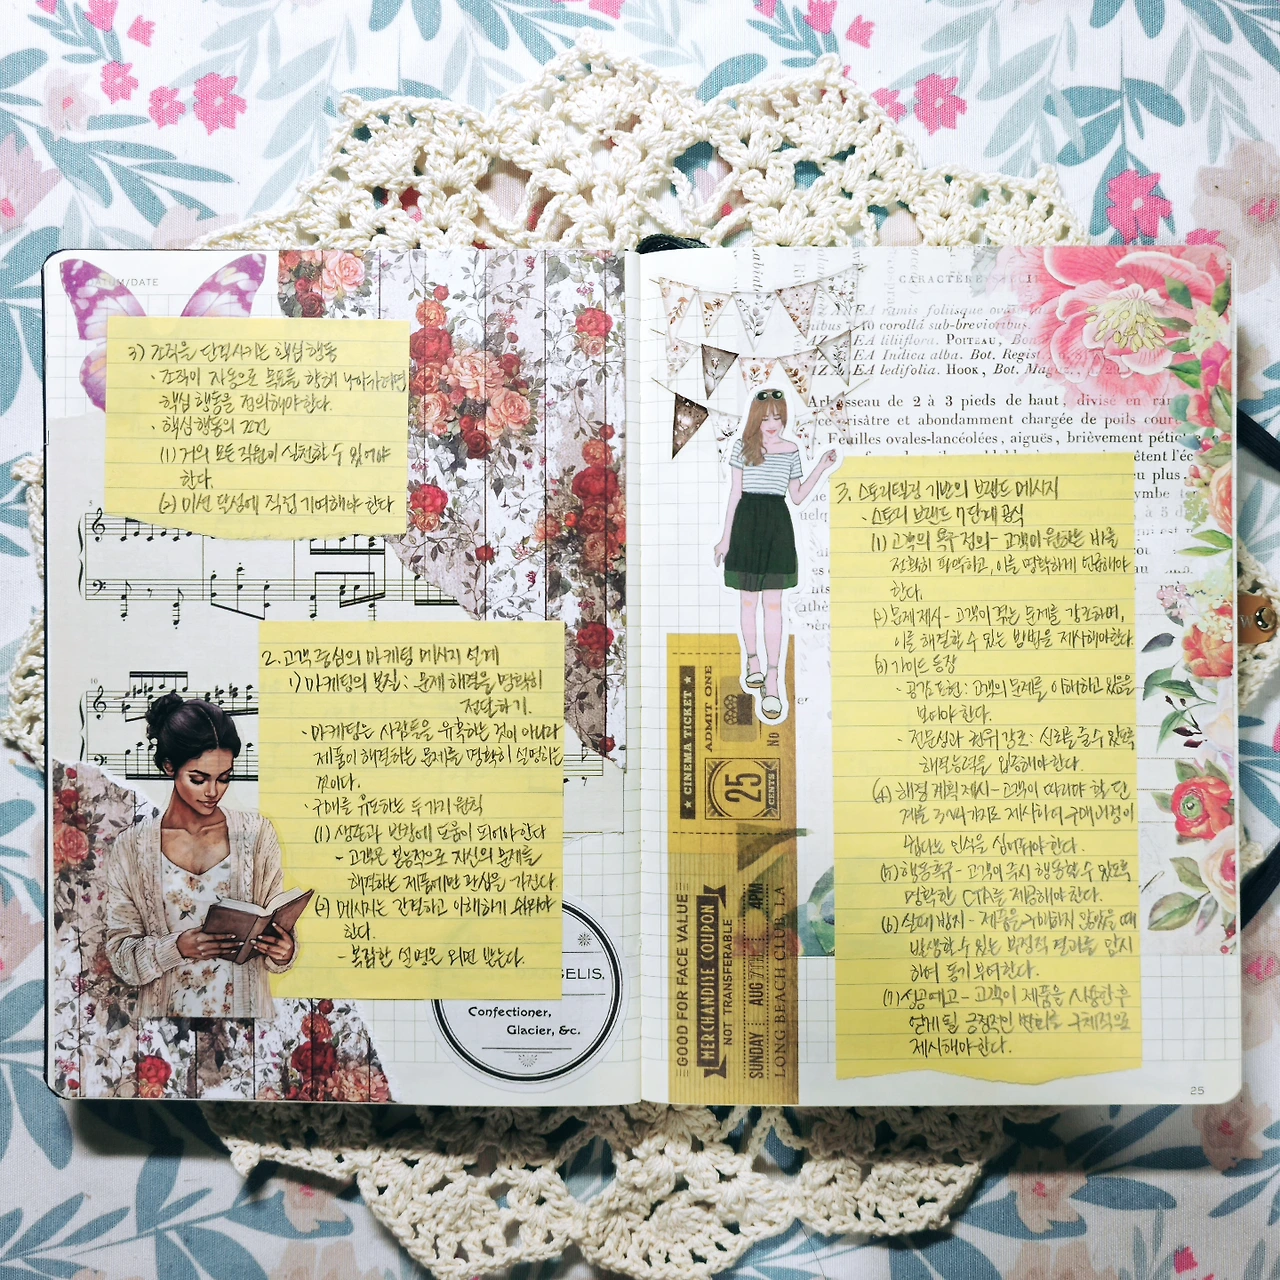 DATUM/DATE
3) 조직을 단결시키는 핵심 행동
· 조직이 자동으로 목표를 향해 나아가려면
핵심 행동을 정의해야한다.
· 핵심행동의 조건
(1) 거의 모든 직원이 실천할 수 있어야
한다.
(2) 미션 달성에 직접 기여해야 한다
5
10
2. 고객 중심의 마케팅 메시지 설계
1) 마케팅의 본질 : 문제 해결을 명확히
전달하기.
· 마케팅은 사람들을 유혹하는 것이 아니라
제품이 해결하는 문제를 명확히 설명하는
것이다.
· 구매를 유도하는 두가지 원칙
(1) 생존과 번창에 도움이 되어야한다
- 고객은 본능적으로 자신의 문제를
해결하는 제품에만 관심을 가진다
(2) 메시지는 간결하고 이해하기 쉬워야
한다.
- 복잡한 설명은 외면 받는다.
GELIS,
Confectioner,
Glacier, &c.
CARACTÈRE
ramis foliisque
10 corollá sub-brevioribus.
EA liliiflora. POITEAU, Bot.
EA Indica alba. Bot. Regist
EA ledifolia. HOOK, Bot. Mag.
de 2 à 3 pieds de haut, divisé en
et abondamment chargée de poils
Feuilles ovales-lancéolées, aiguës, brièvement
plus.
3. 스토리텔링 기반의 브랜드 메시지
· 스토리 브랜드 7단계 공식
(1) 고객의 욕구 정의 - 고객이 원하는 바를
정확히 파악하고, 이를 명확하게 언급해야
한다.
(2) 문제 제시 - 고객이 겪는 문제를 강조하며,
이를 해결할 수 있는 방법을 제시해야한다.
(3) 가이드 등장
· 공감 표현 : 고객의 문제를 이해하고 있음을
보여야 한다.
· 전문성과 권위 강조 : 신뢰를 줄 수 있도록
해결능력을 입증해야한다.
(4) 해결 계획 제시 - 고객이 따라야 할 단
계를 3~4가지로 제시하여 구매 과정이
쉽다는 인식을 심어줘야 한다.
(5) 행동 촉구 - 고객이 즉시 행동할 수 있도록
명확한 CTA를 제공해야 한다.
(6) 실패 방지 - 제품을 구매하지 않았을 때
발생할 수 있는 부정적 결과를 암시
하여 동기 부여한다.
(7) 성공 예고 - 고객이 제품을 사용한 후
얻게 될 긍정적인 변화를 구체적으로
제시해야 한다.
★ CINEMA TICKET ★
ADMIT ONE
No
25
CENTS
GOOD FOR FACE VALUE
MERCHANDISE COUPON
NOT TRANSFERABLE
SUNDAY AUG 7 4PM
LONG BEACH CLUB LA
25